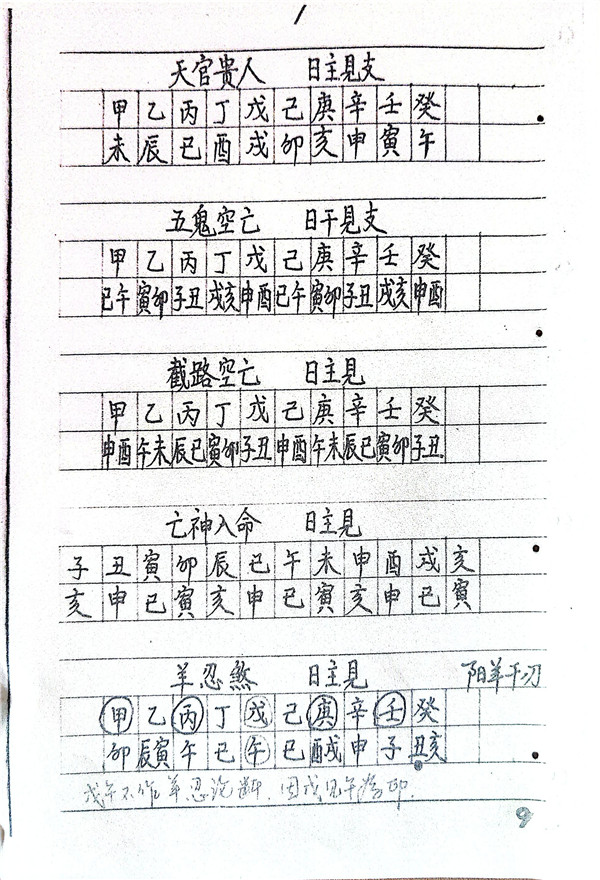 天官贵人 日主見支
甲 乙 丙 丁 戊 己 庚 辛 壬 癸
未 辰 巳 酉 戌 卯 亥 申 寅 午
五鬼空亡 日干見支
甲 乙 丙 丁 戊 己 庚 辛 壬 癸
巳午 寅卯 子丑 戌亥 申酉 巳午 寅卯 子丑 戌亥 申酉
截路空亡 日主見
甲 乙 丙 丁 戊 己 庚 辛 壬 癸
申酉 午未 辰巳 寅卯 子丑 申酉 午未 辰巳 寅卯 子丑
亡神入命 日主見
子 丑 寅 卯 辰 巳 午 未 申 酉 戌 亥
亥 申 巳 寅 亥 申 巳 寅 亥 申 巳 寅
羊忍煞 日主見 阳羊干刃
甲 乙 丙 丁 戊 己 庚 辛 壬 癸
卯 辰寅 午 巳 午 巳 酉戌 申 子 丑亥
戊午不作羊忍论断、因戊见午为印.
9